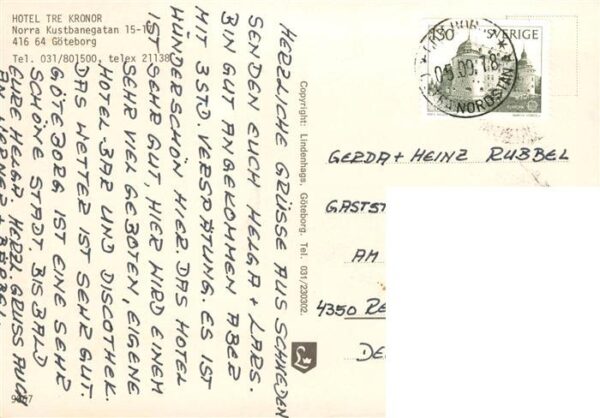 HOTEL TRE KRONOR
Norra Kustbanegatan 15-17
416 64 Göteborg
Tel. 031/801500, telex 21138
HERZLICHE GRÜSSE AUS SCHWEDEN
SENDEN EUCH HELGA + LARS.
BIN GUT ANGEKOMMEN ABER
MIT 3 STD VERSPÄTUNG. ES IST
WUNDERSCHÖN HIER. DAS HOTEL
IST SEHR GUT, HIER WIRD EINEM
SEHR VIEL GEBOTEN, EIGENE
HOTEL BAR UND DISCOTHEK.
DAS WETTER IST SEHR GUT.
GÖTEBORG IST EINE SEHR
SCHÖNE STADT. BIS BALD
EURE HELGA. HERZL GRUSS AUCH
AN WERNER + BÄRBEL.
Copyright: Lindenhags, Göteborg. Tel. 031/230302.
130 SVERIGE
EUROPA
NORDSTAN
GERDA + HEINZ RUBBEL
GASTST
AM
4350 RE
DE